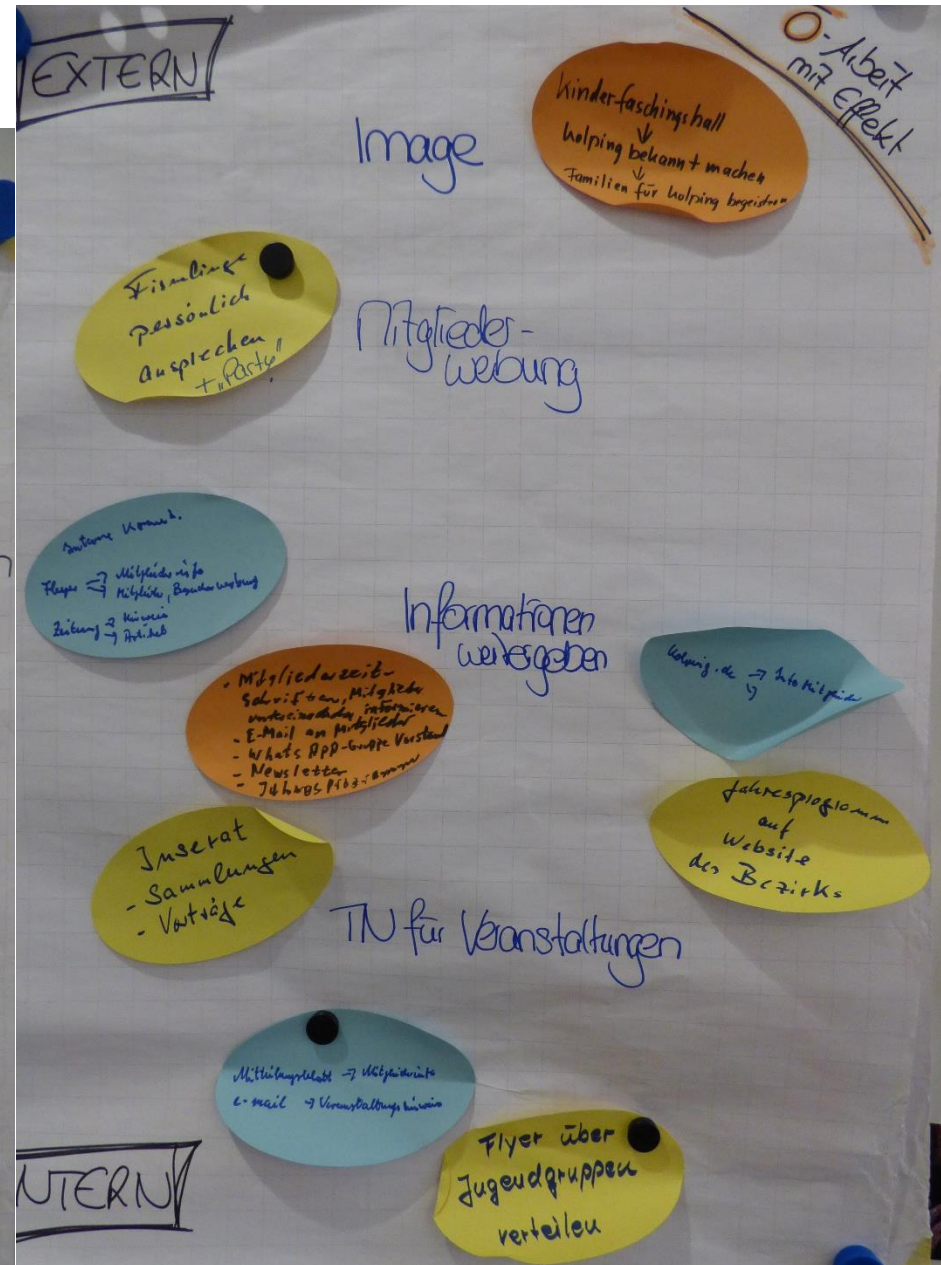 EXTERN
Ö-Arbeit
mit Effekt
Image
Kinderfaschingsball
↓
Kolping bekannt machen
↓
Familien für Kolping begeistern
Firmlinge
persönlich
ansprechen
+ "Party"
Mitglieder-
werbung
Interne Komm.
Flyer → Mitgliederinfo
→ Mitglieder, Besucherwerbung
Zeitung → Hinweis
→ Artikel
Informationen
weitergeben
Kolping.de → Info Mitglieder
- Mitgliederzeit-
schriften, Mitglieder
untereinander informieren
- E-Mail an Mitglieder
- WhatsApp-Gruppe Vorstand
- Newsletter
- Jahresprogramm
Jahresprogramm
auf
Website
des Bezirks
Inserat
- Sammlungen
- Vorträge
TN für Veranstaltungen
Mitteilungsblatt → Mitgliederinfo
e-mail → Veranstaltungshinweis
Flyer über
Jugendgruppen
verteilen
NTERN